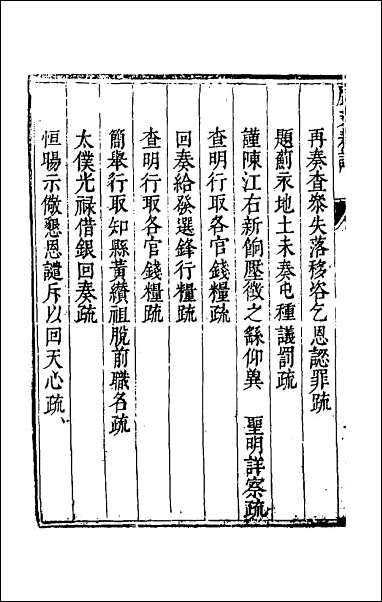 再奏查叅失落移咨乞恩認罪疏
題薊永地土未奏屯種議罰疏
謹陳江右新餉壓徵之繇仰冀　聖明詳察疏
查明行取各官錢糧疏
回奏給發選鋒行糧疏
查明行取各官錢糧疏
簡舉行取知縣黃纘祖脫前職名疏
太僕光祿借銀回奏疏
恒暘示儆懇恩譴斥以回天心疏